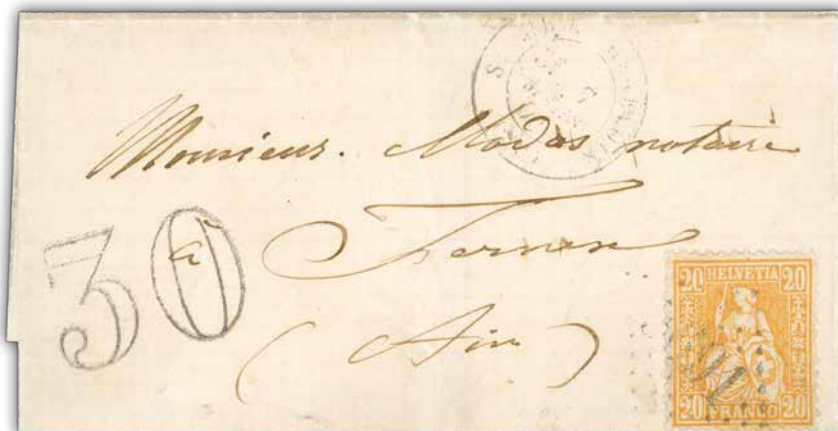 Monsieur. Modas notaire
30
à Fernex
(Ain)
20 HELVETIA 20
20 FRANCO 20